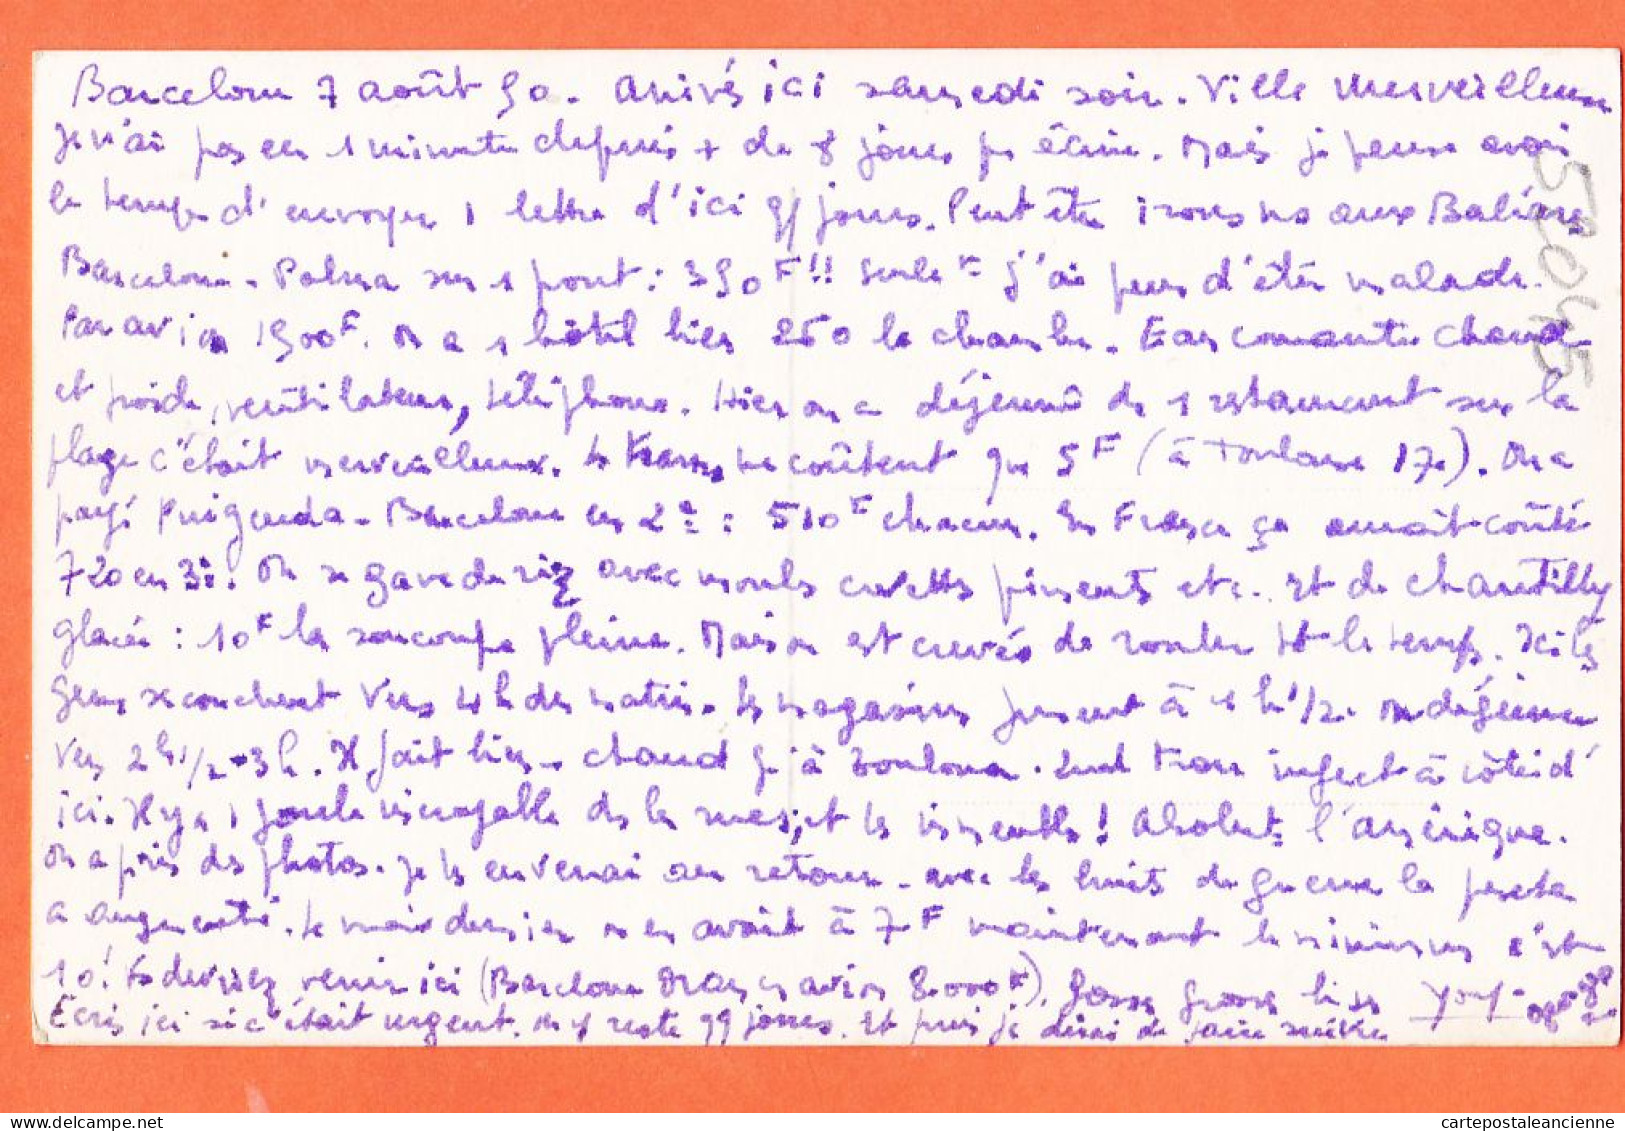 Barcelone 7 août 50. Arrivés ici samedi soir. Ville merveilleuse
Je n'ai pas eu 1 minute depuis + de 8 jours pr écrire. Mais je pense avoir
le temps d'envoyer 1 lettre d'ici qq jours. Peut être irons ns aux Baléares
Barcelone - Palma sur 1 pont : 350F!! Seulet J'ai peur d'être malade.
Par avion 1500F. On a 1 hôtel bien 250 la chambre. Eau courante chaude
et froide, ventilateur, téléphone. Hier on a déjeuné ds 1 restaurant sur la
plage c'était merveilleux. Les trams ne coûtent que 5F (à Toulouse 17). On a
payé Puigcerda - Barcelone en 2e : 510F chacun. En France ça aurait coûté
720 en 3e. On se gave de riz avec moules crevettes piments etc. Et de chantilly
glacée : 10F la soucoupe pleine. Mais on est crevés de rouler tt le temps. Ici les
gens se couchent vers 4h du matin. Les magasins ferment à 1h 1/2. On déjeune
vers 2h 1/2 - 3h. Il fait bien - chaud qu'à Toulouse. Sud tram infect à côté d'
ici. Il y a 1 foule incroyable ds les rues, et les immeubles! Absolut l'amérique.
On a pris des photos. Je les enverrai au retour. Avec les bruits de guerre la peseta
a augmenté. Le mois dernier on en avait à 7F maintenant le minimum c'est
10! Vs devriez venir ici (Barcelone Oran en avion 8.000F). Grosses grosses bises
Ecris ici si c'était urgent. On y reste qq jours. Et puis je dirai de faire suivre
58045